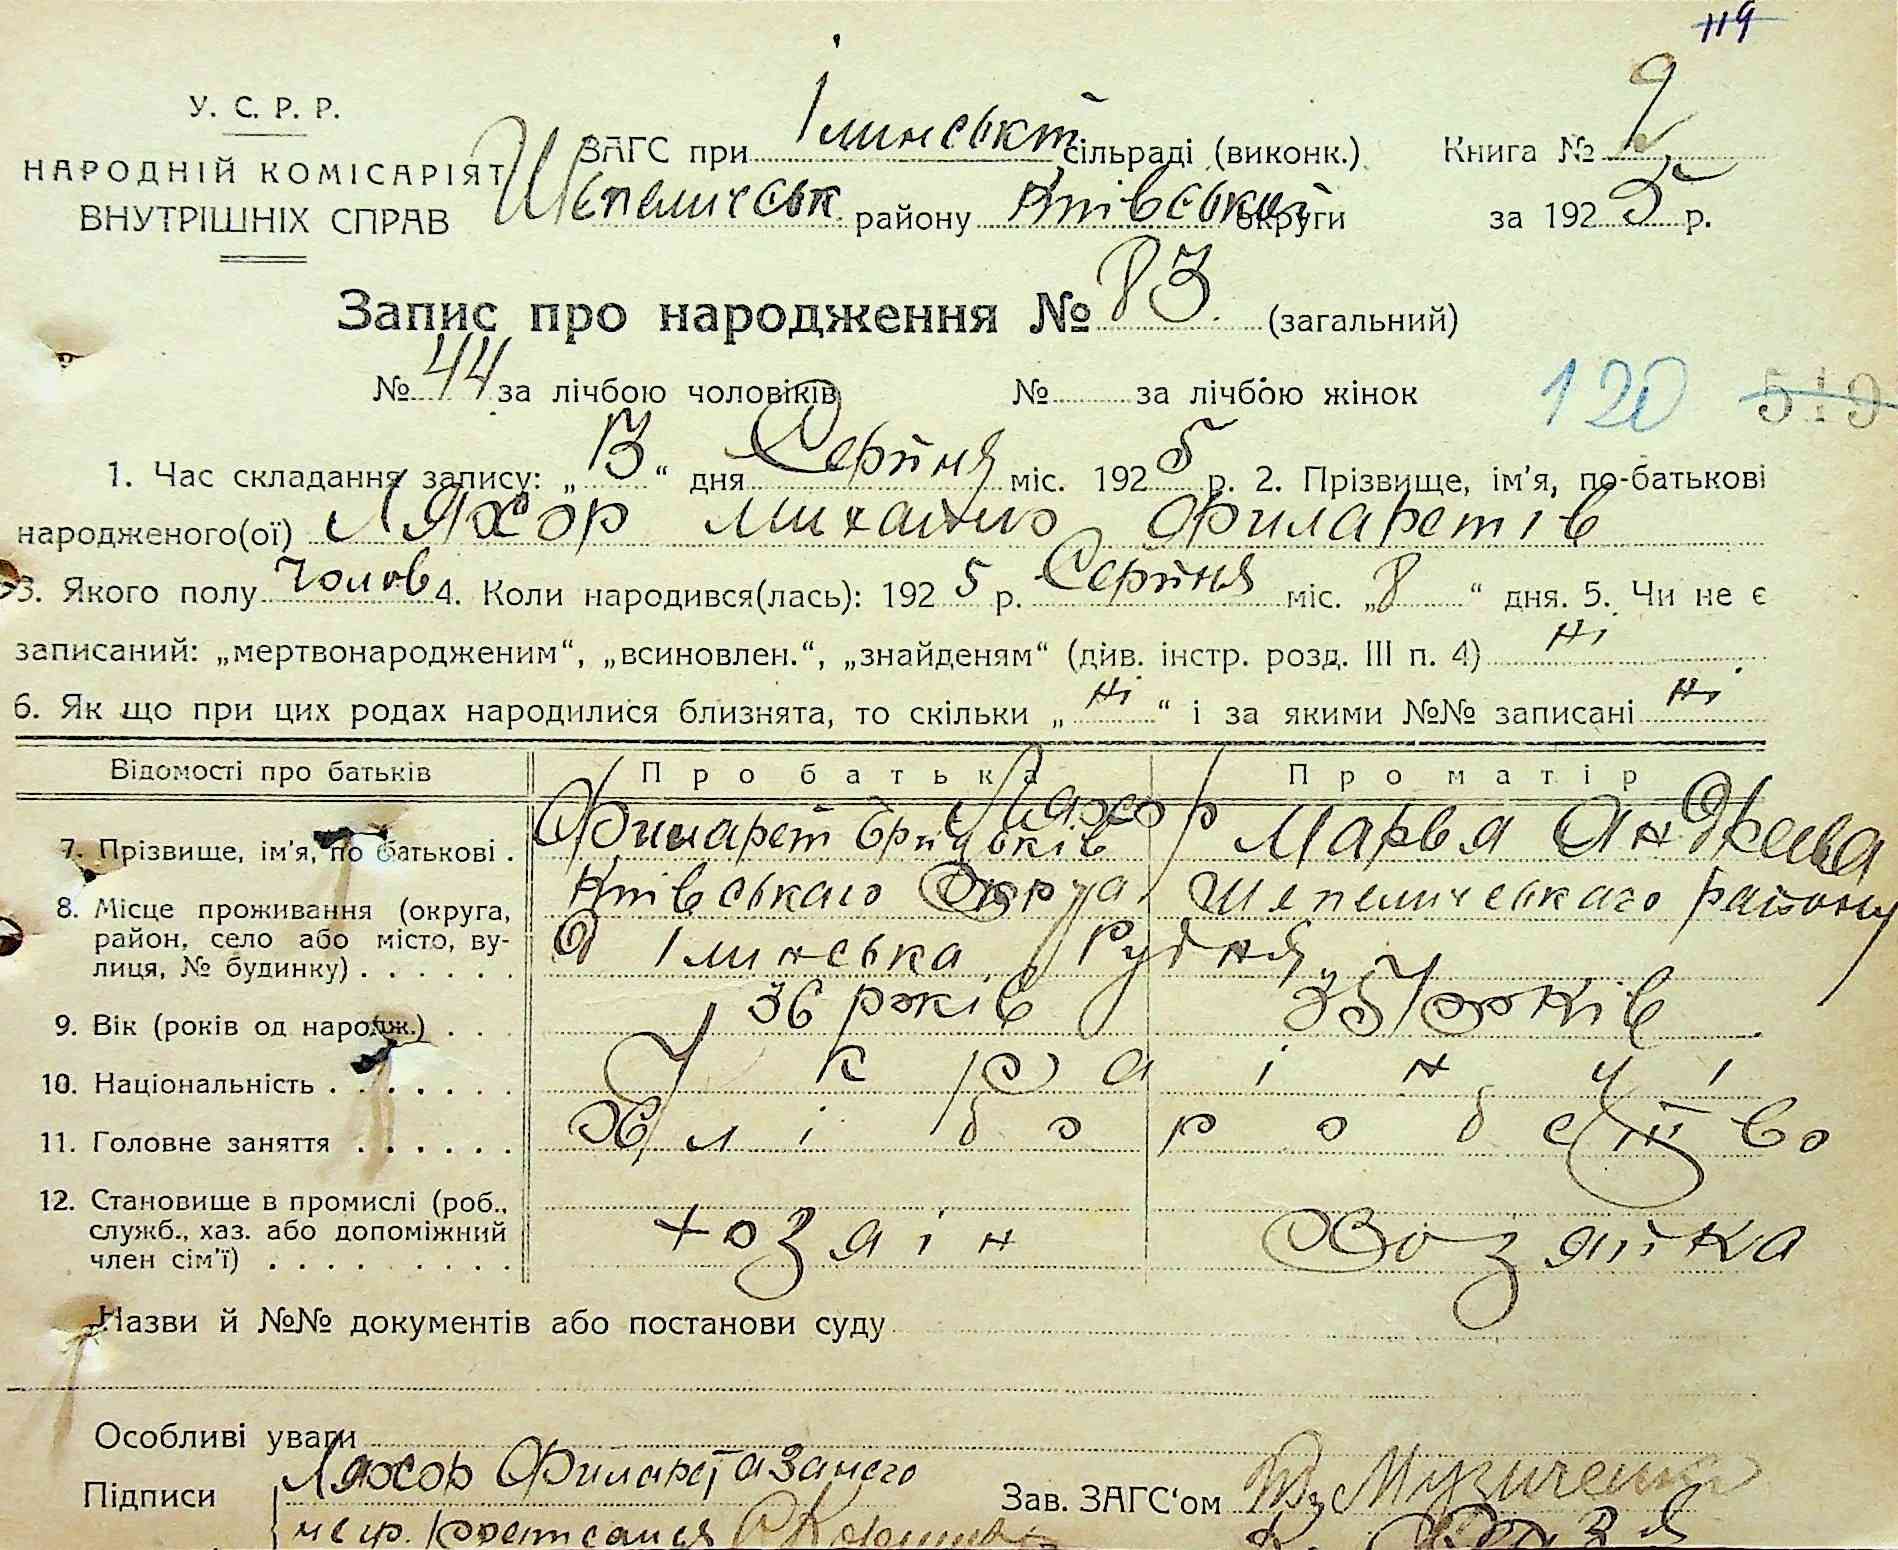 119
У. С. Р. Р.
НАРОДНІЙ КОМІСАРІЯТ
ВНУТРІШНІХ СПРАВ
ЗАГС при Ілинськт сільраді (виконк.)
Шепеличськ району Київської округи
Книга № 2
за 1925 р.
Запис про народження № 83. (загальний)
№ 44 за лічбою чоловіків № за лічбою жінок
120 519
1. Час складання запису: „13“ дня Серпня міс. 1925 р. 2. Прізвище, ім’я, по-батькові
народженого(ої) Ляхор Михайло Филаретів
3. Якого полу Чолов 4. Коли народився(лась): 1925 р. Серпня міс. „8“ дня. 5. Чи не є
записаний: „мертвонародженим“, „всиновлен.“, „знайденям“ (див. інстр. розд. III п. 4) ні
6. Як що при цих родах народилися близнята, то скільки „ні“ і за якими №№ записані ні
Відомості про батьків Про батька Про матір
7. Прізвище, ім’я, по батькові . Ляхор Филарет Марья Андреева
8. Місце проживання (округа, Київського Округа Шепеличського района
район, село або місто, ву- Ілинська Рудня
лиця, № будинку) . . . . . .
9. Вік (років од народж.) . . . 36 років 35 років
10. Національність . . . . . . . Українці
11. Головне заняття . . . . . . Хліборобство
12. Становище в промислі (роб.,
служб., хаз. або допоміжний хозяін хозяйка
член сім’ї) . . . . . . . . .
Назви й №№ документів або постанови суду
Особливі уваги
Підписи Ляхор Филарет а за него
Зав. ЗАГС‘ом Музиченко